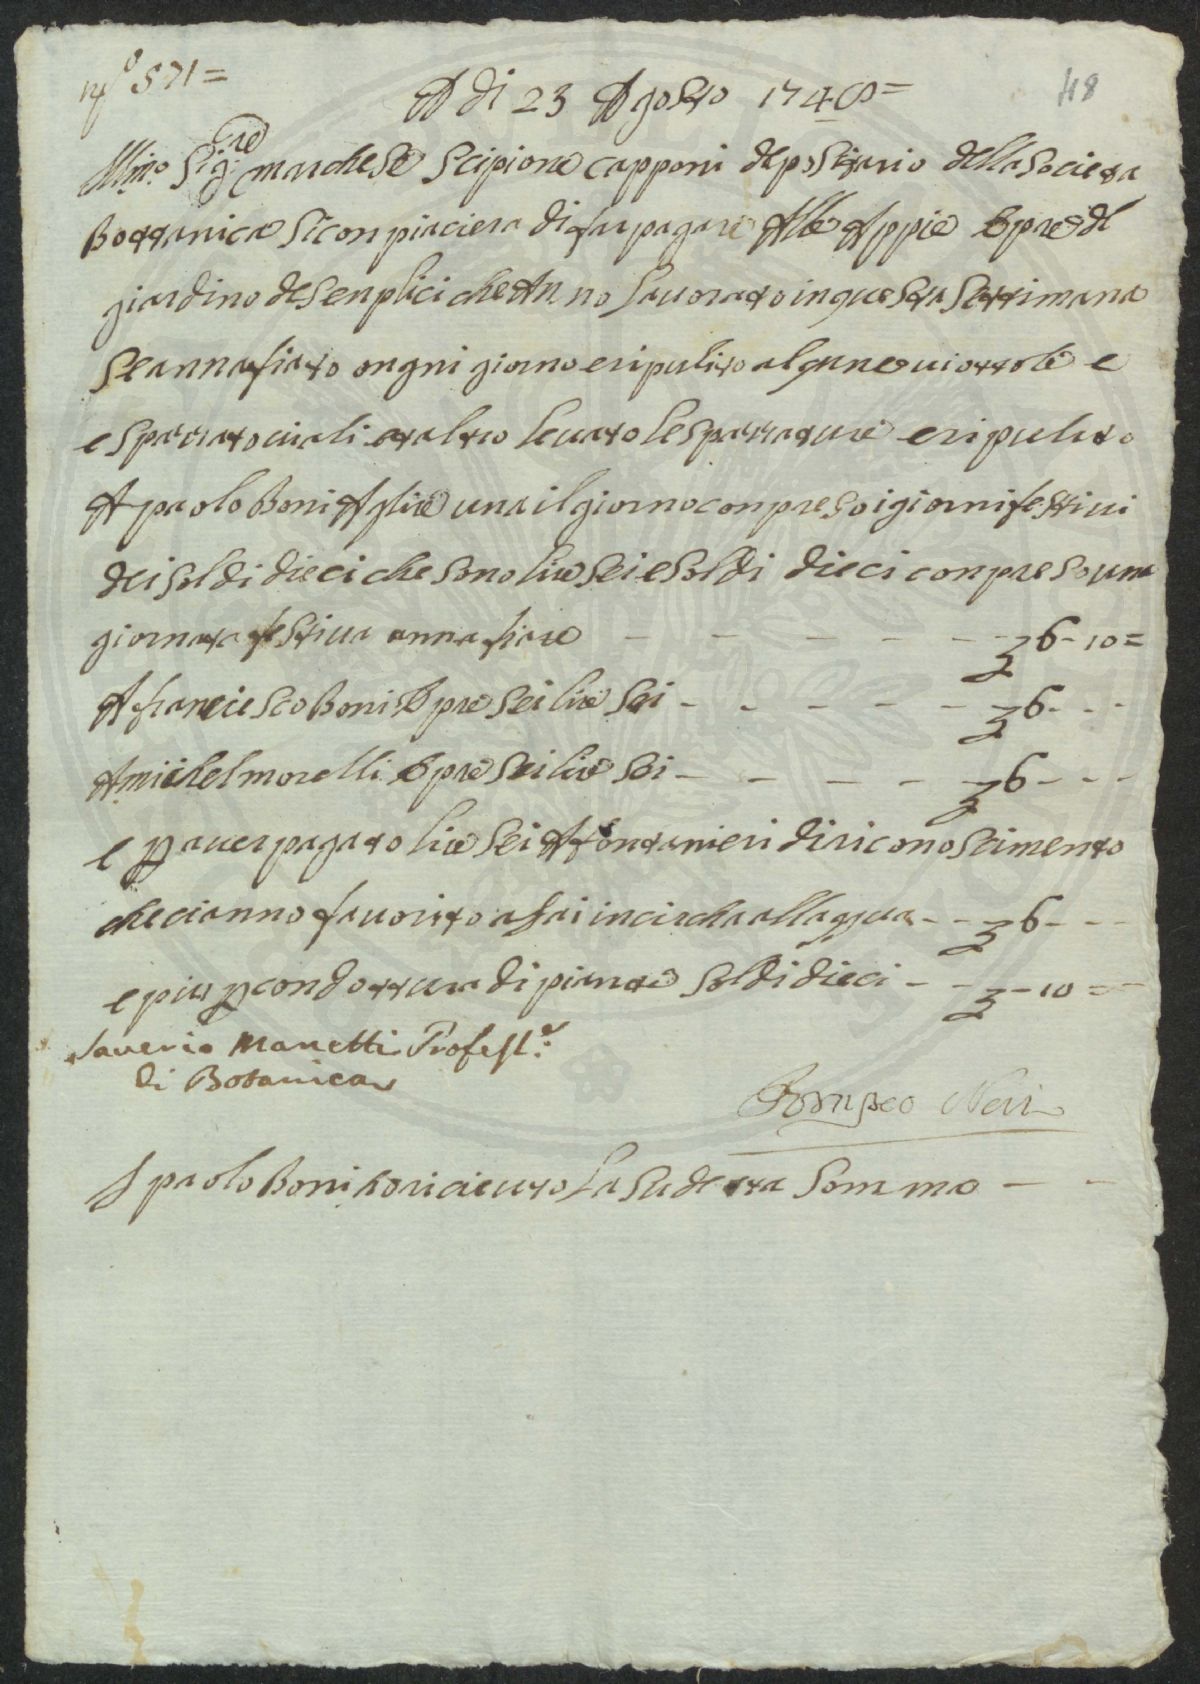 No 571=
48
A di 23 Agosto 1748=
Illmo Sigre marchese Scipione capponi depositario della Societa
Bottanica Si conpiaciera di far pagare Alle Appie Opre del
giardino de Senplici che Anno lauorato in questa Settimana
Se annafiato ongni giorno e ripulito alqune uiottole e
e sparrato uiali et altro leuato le sparrature e ripulito
A paolo Boni A lire una il giorno conpreso i giorni festiui
dei soldi dieci che sono lire sei e soldi dieci conpreso una
giornata festiua annafiare - - - - - - 6-10=
A franciesco Boni Opre sei lire sei - - - - - - 6- - -
A michel morelli Opre sei lire sei - - - - - 6- - -
e p auer pagato lire sei A fontanieri di riconoscimento
che ci anno fauorito assai in circha allaqua - - 6- - -
e piu p condottura di piante soldi dieci - - - 10 =
Saverio Manetti Profess.e
di Botanica
Pompeo Neri
I paolo Boni ho riceuto La Sudetta Somma - -